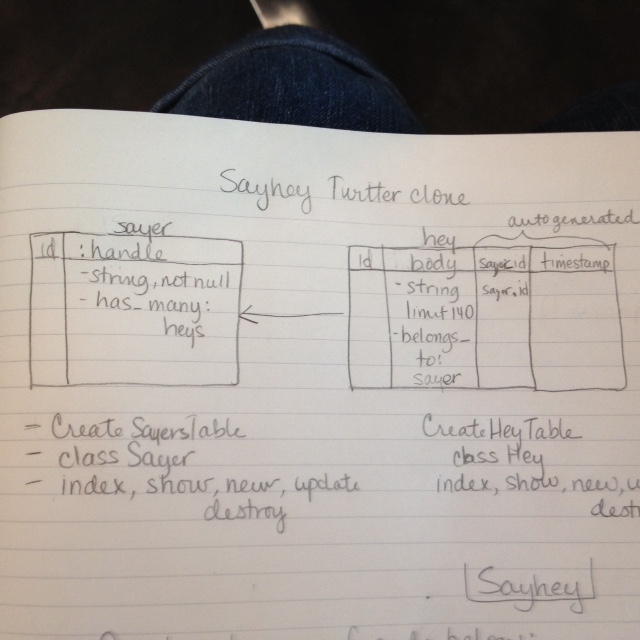 Sayhey Twitter clone
sayer
id :handle
-string, not null
-has_many:
heys
hey
autogenerated
id body sayer.id timestamp
-string sayr.id
limit 140
-belongs_
to:
sayer
- Create SayersTable
- class Sayer
- index, show, new, update
destroy
Create HeyTable
class Hey
index, show, new, u
destr
Sayhey